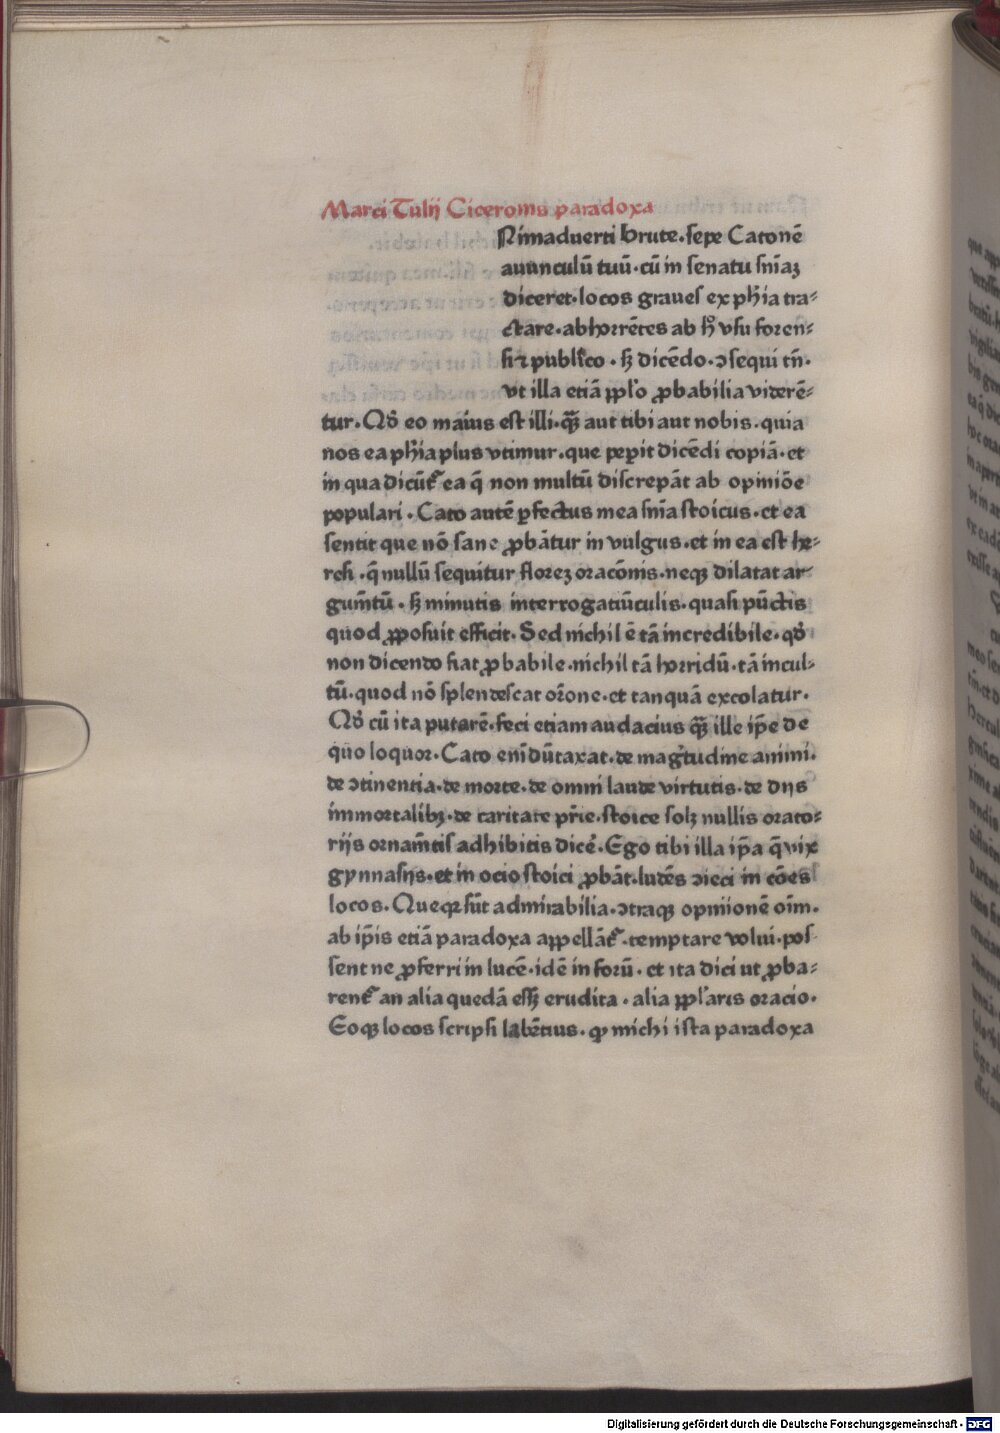 Marci Tulij Ciceronis paradoxa
Nimaduerti brute·sepe Catonē
auunculū tuū·cū in senatu snīaꝫ
diceret·locos graues ex phīa tra⸗
ctare·abhorrētes ab hͦ vsu foren⸗
si ⁊ publico·sꝫ dicēdo·ɔsequi tn̄·
vt illa etiā ꝓpl'o ꝓbabilia viderē⸗
tur·Qd̛ eo maius est illi·q̄ꝫ aut tibi aut nobis·quia
nos ea phīa plus vtimur·que peꝑit dicēdi copiā·et
in qua dicūt᷑ ea q̄ non multū discrepāt ab opiniōe
populari·Cato autē ꝑfectus mea snīa stoicus·et ea
sentit que nō sane ꝓbātur in vulgus·et in ea est he⸗
resi·q̄ nullū sequitur floreꝫ oracōnis·neqꝫ dilatat ar⸗
gum̄tū·sꝫ minutis interrogatiūculis·quasi pūctis
quod ꝓposuit efficit·Sed nichil ē tā incredibile·qd̛
non dicendo fiat ꝓbabile·nichil tā horridū·tā incul⸗
tū·quod nō splendescat orōne·et tanquā excolatur·
Qd̛ cū ita putarē·feci etiam audacius q̄ꝫ ille ip̄e de
quo loquor·Cato eni᷑ dūtaxat·de mag̓tudine animi·
de ɔtinentia·de morte·de omni laude virtutis·de dijs
immortalibꝫ·de caritate pr̄ie·stoice solꝫ nullis orato⸗
rijs ornam̄tis adhibitis dicē·Ego tibi illa ip̄a q̄ vix
gymnasijs·et in ocio stoici ꝓbāt·ludēs ɔieci in cōes
locos·Que qꝛ sūt admirabilia·ɔtraqꝫ opinionē oīm·
ab ip̄is etiā paradoxa appellāt᷑·temptare volui·pos⸗
sent ne ꝓferri in lucē·idē in forū·et ita dici ut ꝓba⸗
rent᷑ an alia quedā essꝫ erudita·alia ꝓpl'aris oracio·
Eoqꝫ locos scripsi labētius·ꝙ michi ista paradoxa
Digitalisierung gefördert durch die Deutsche Forschungsgemeinschaft - DFG